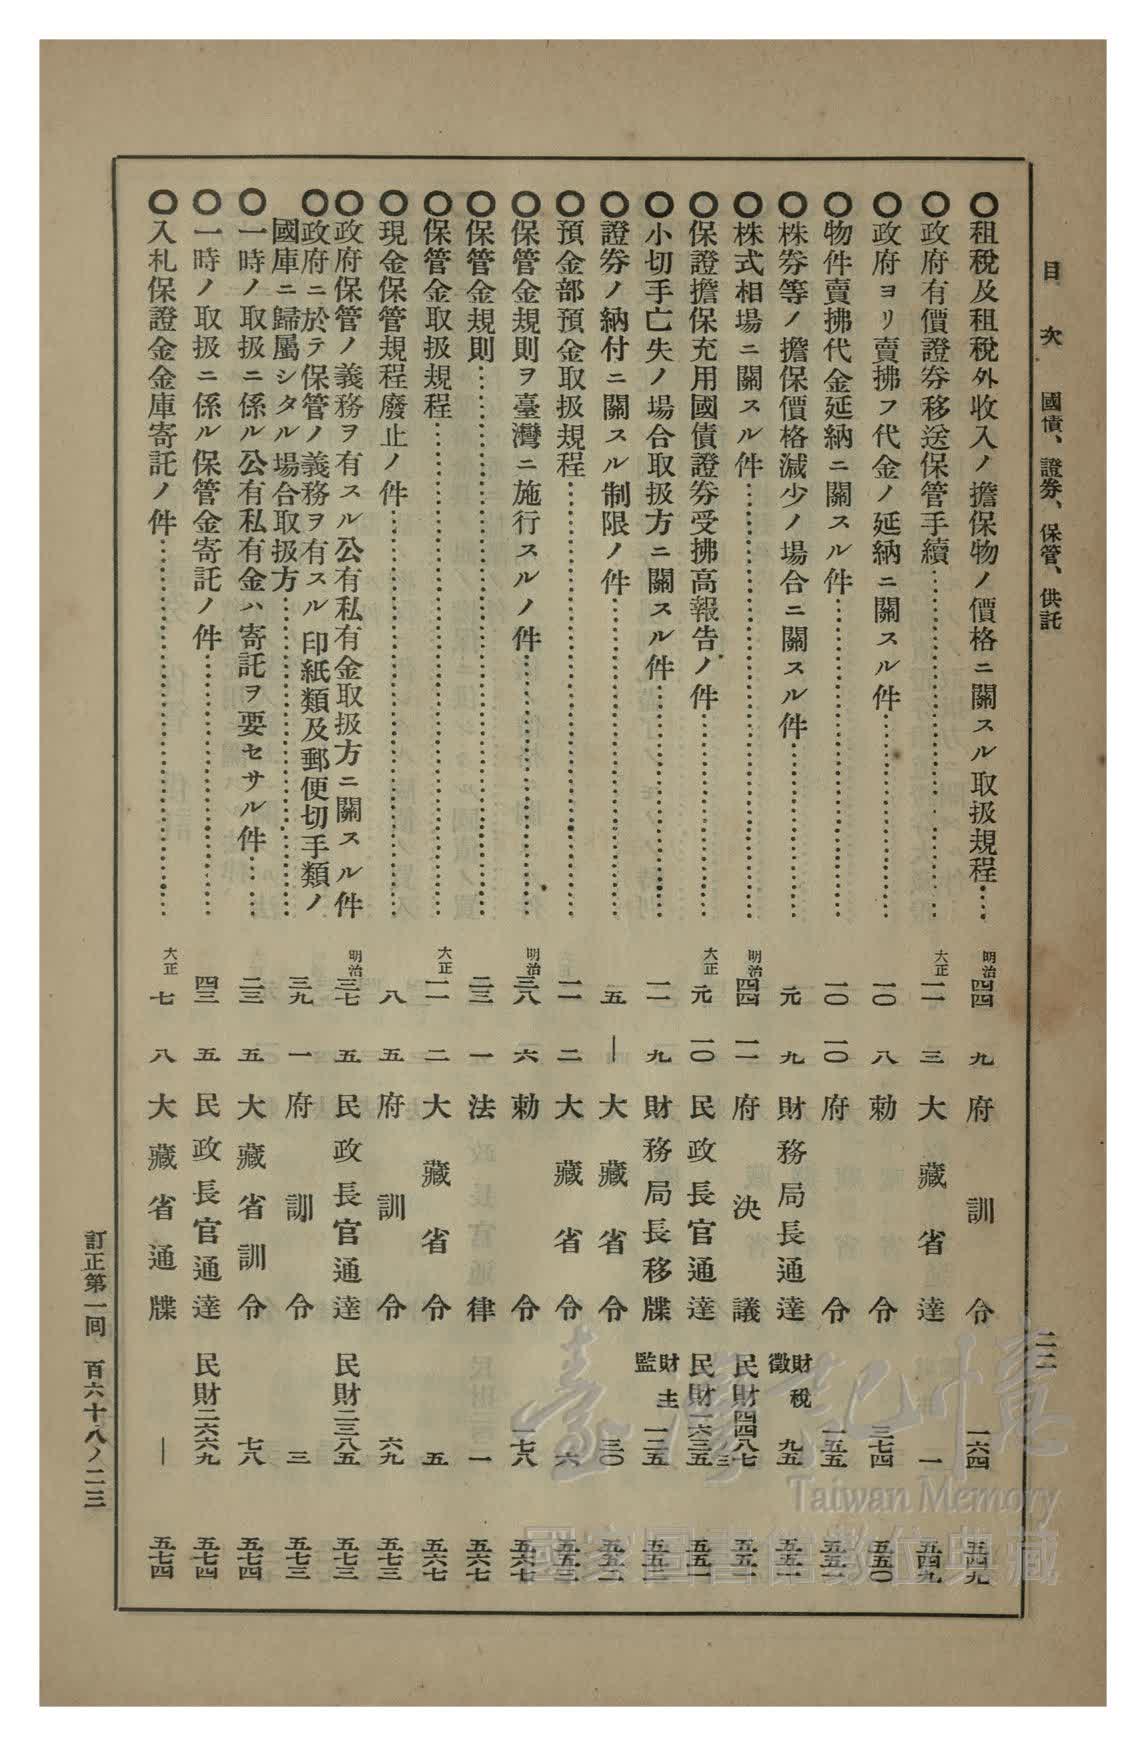 目次　國債、證券、保管、供託
二二
○租稅及租稅外收入ノ擔保物ノ價格ニ關スル取扱規程…　明治四四　九　府訓令　一六四　五四九
○政府有價證券移送保管手續…　大正一一　三　大藏省達　一　五四九
○政府ヨリ賣拂フ代金ノ延納ニ關スル件…　一〇　八　勅令　三七四　五五〇
○物件賣拂代金延納ニ關スル件…　一〇　一〇　府令　一五五
○株券等ノ擔保價格減少ノ場合ニ關スル件…　元　九　財務局長通達　財稅徵　九五
○株式相場ニ關スル件…　明治四四　一一　府決議　民財四四八七
○保證擔保充用國債證券受拂高報告ノ件…　大正元　一〇　民政長官通達　民財一六三五
○小切手亡失ノ場合取扱方ニ關スル件…　一一　九　財務局長移牒　財主監　一二五
○證券ノ納付ニ關スル制限ノ件…　五　—　大藏省令　三〇
○預金部預金取扱規程…　一一　二　大藏省令　六
○保管金規則ヲ臺灣ニ施行スルノ件…　明治三八　六　勅令　一七八　五六七
○保管金規則…　二三　一　法律　一　五六七
○保管金取扱規程…　大正一一　二　大藏省令　五　五六七
○現金保管規程廢止ノ件…　八　五　府訓令　六九　五七三
○政府保管ノ義務ヲ有スル公有私有金取扱方ニ關スル件　明治三七　五　民政長官通達　民財二三八五　五七三
○政府ニ於テ保管ノ義務ヲ有スル印紙類及郵便切手類ノ
國庫ニ歸屬シタル場合取扱方…　三九　一　府訓令　三　五七三
○一時ノ取扱ニ係ル公有私有金ハ寄託ヲ要セサル件…　二三　五　大藏省訓令　七八　五七四
○一時ノ取扱ニ係ル保管金寄託ノ件…　四三　五　民政長官通達　民財二六六九　五七四
○入札保證金金庫寄託ノ件…　大正七　八　大藏省通牒　—　五七四
訂正第一回　百六十八ノ二三
臺灣記憶
Taiwan Memory
國家圖書館數位典藏